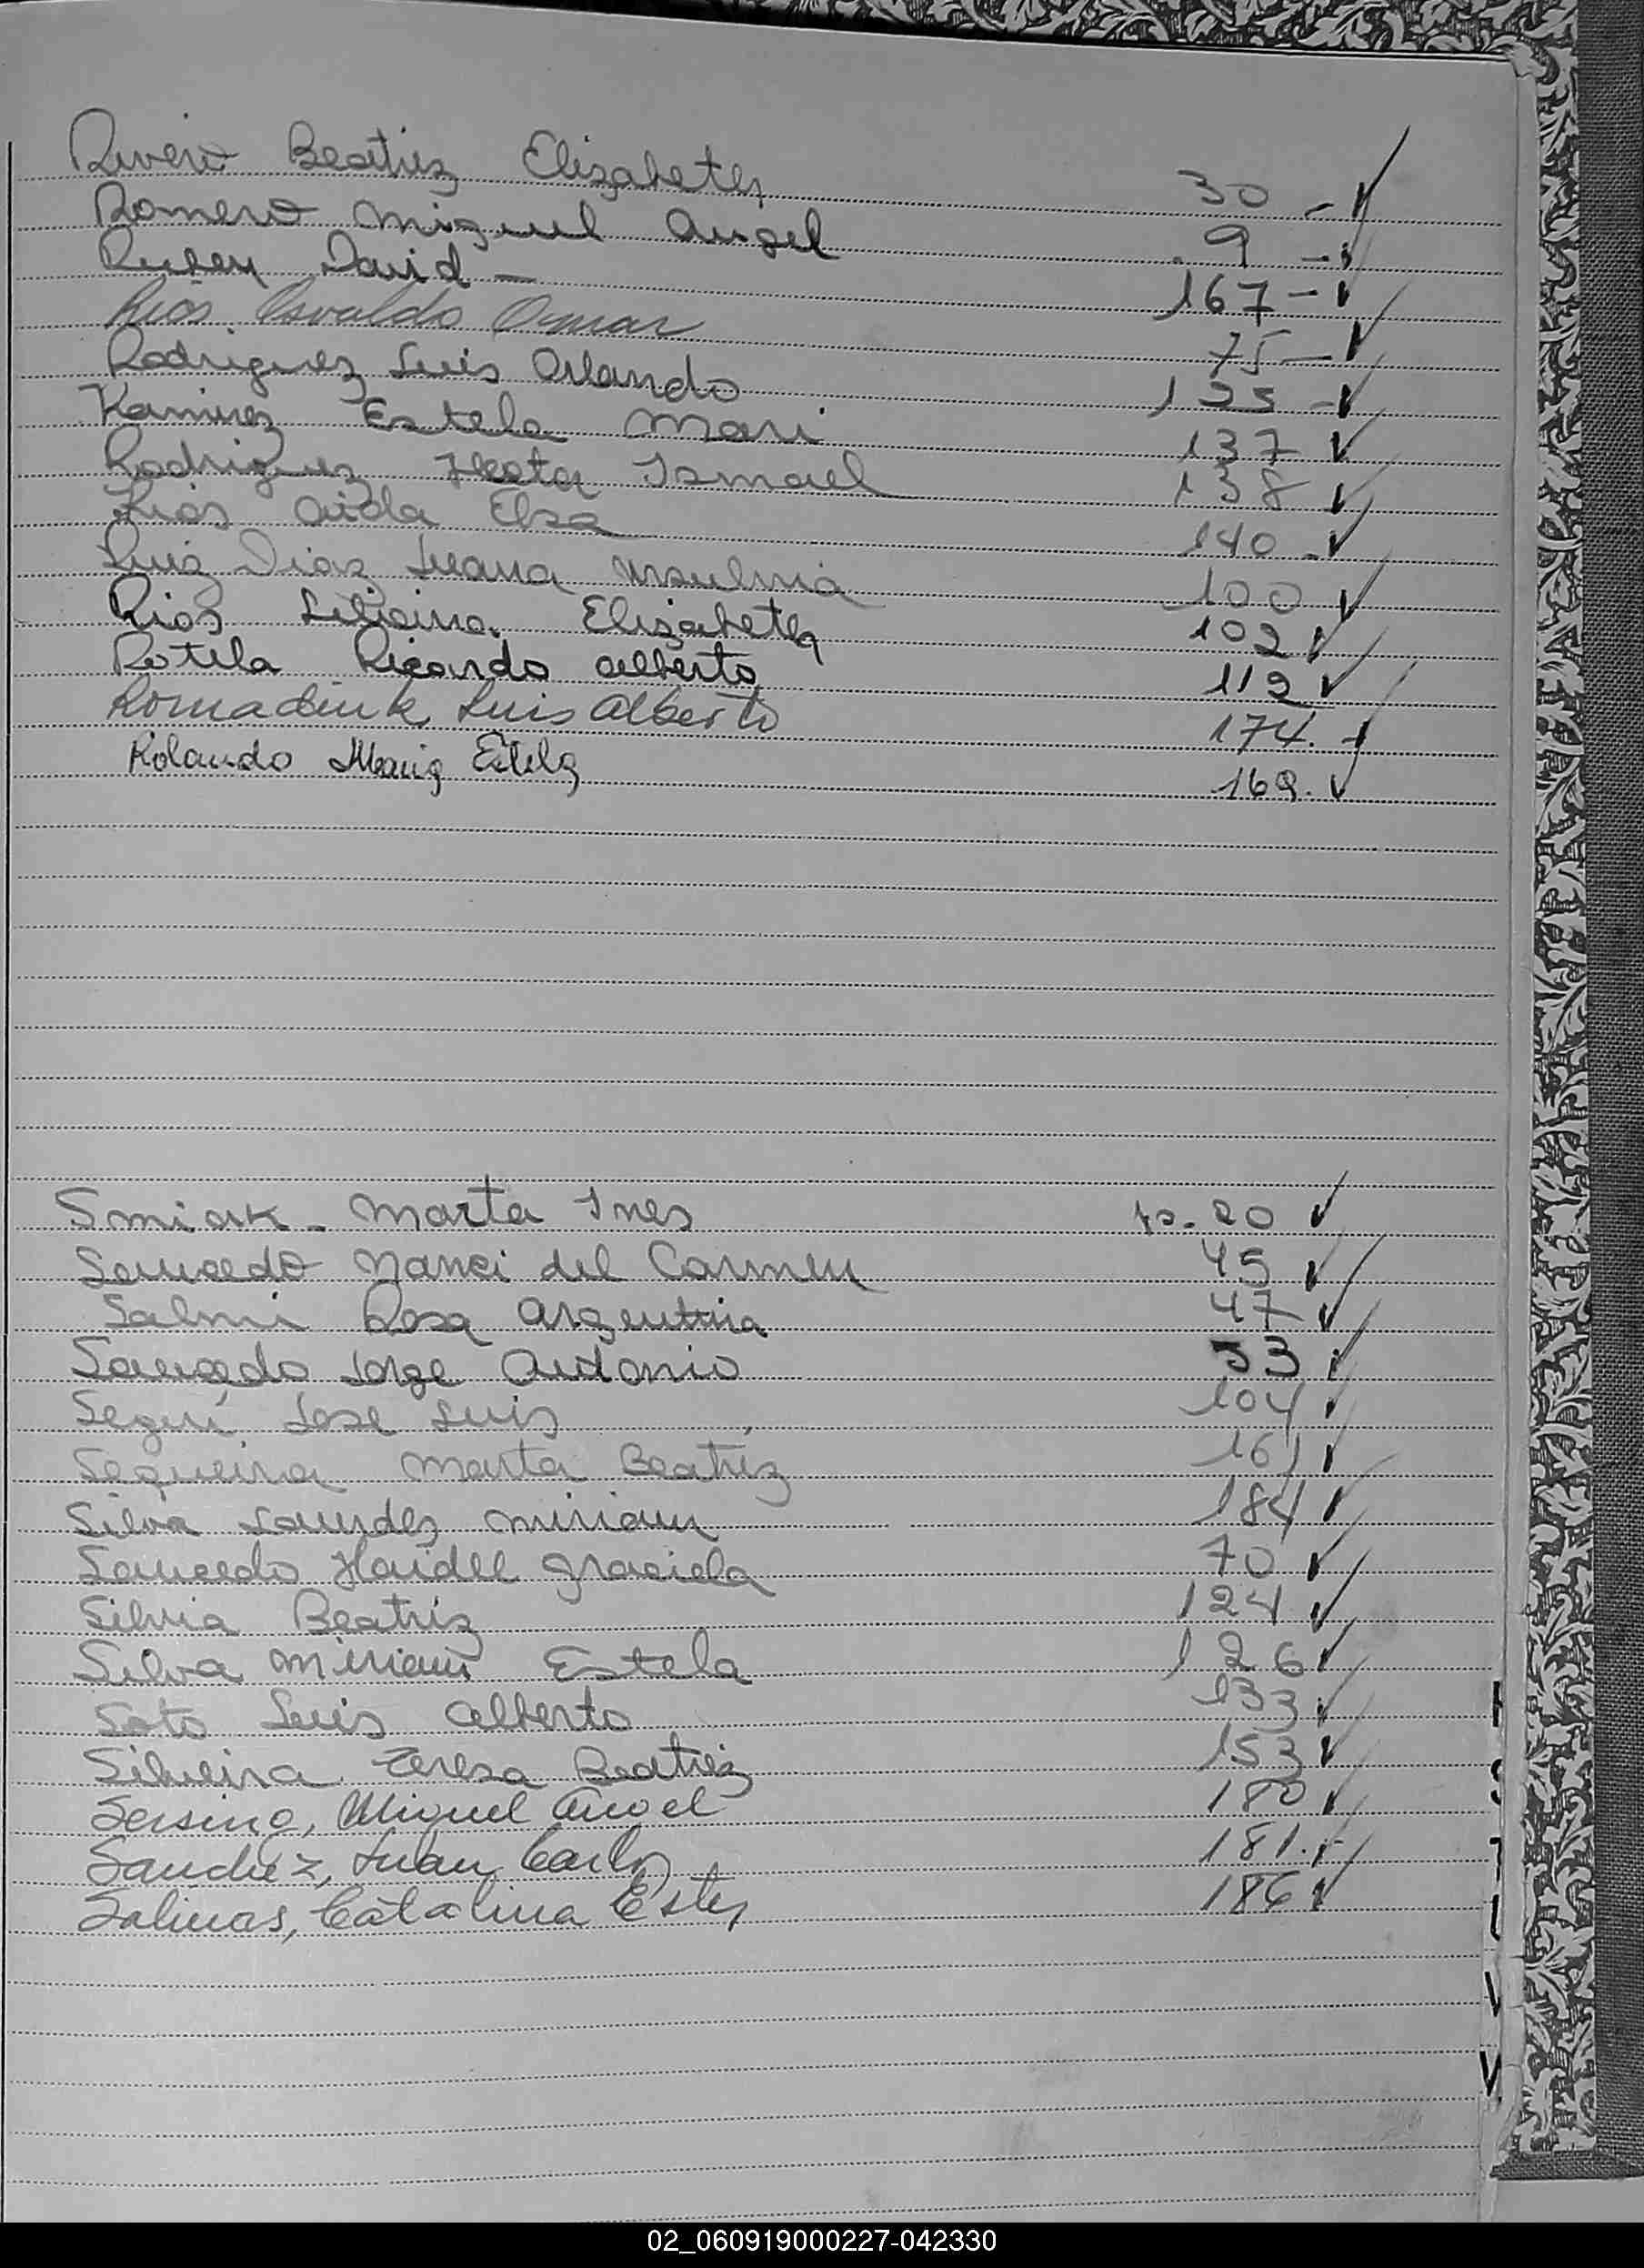 Rivero Beatriz Elizabeth 30 - ✓
Romero Miguel Angel 9 - ✓
David - 167 - ✓
Rios Osvaldo Omar 75 - ✓
Rodriguez Luis Orlando 125 - ✓
Ramirez Estela Mari 137 ✓
Rodriguez Hector Ismael 138 ✓
Rios Aida Elsa 140 - ✓
Ruiz Diaz Juana Ursulina 100 ✓
Rios Liliana Elizabeth 102 ✓
Rotela Ricardo Alberto 112 ✓
Romaniuk Luis Alberto 174. ✓
Rolando Maria Estela 169. ✓
Smiak - Marta Ines 20 ✓
Saucedo Nanci del Carmen 45 ✓
Salmi Rosa Argentina 47 ✓
Saucedo Jorge Antonio 53 ✓
Seguí Jose Luis 104 ✓
Sequeira Marta Beatriz 161 ✓
Silva Lourdes Miriam 184 ✓
Saucedo Haidee Graciela 70 ✓
Silvia Beatriz 124 ✓
Silva Miriam Estela 126 ✓
Soto Luis Alberto 133 ✓
Silveira Teresa Beatriz 153 ✓
Sersing, Miguel Angel 180 ✓
Sanchez, Juan Carlos 181. ✓
Salinas, Catalina Ester 186 ✓
02_060919000227-042330